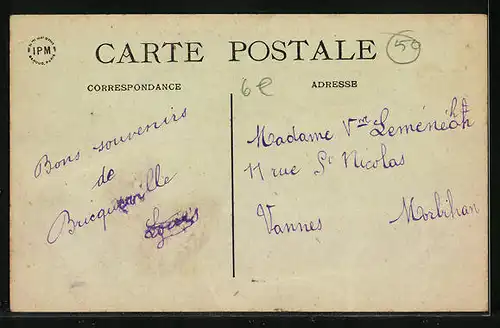 IPM
CARTE POSTALE
50
CORRESPONDANCE
ADRESSE
6€
Bons souvenirs
de
Bricqueville
Madame Vve
11 rue St Nicolas
Vannes Morbihan